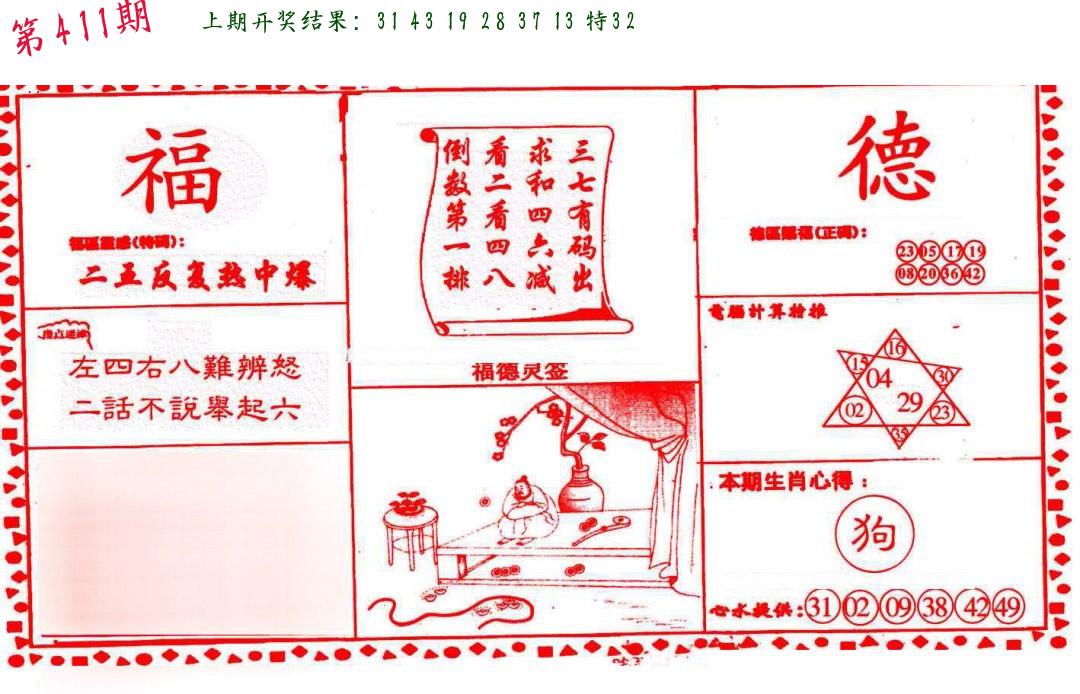 第411期
上期开奖结果: 31 43 19 28 37 13 特32
福
福區靈感(特碼):
二五反复熱中爆
指点迷津
左四右八難辨怒
二話不說舉起六
三七有码出
求和四六减
看二看四八
倒数第一排
福德灵签
德
德區賜福(正碼):
23 05 17 19
08 20 36 42
電腦計算特推
16
15 04 30
02 29 23
35
本期生肖心得:
狗
心水提供:31 02 09 38 42 49